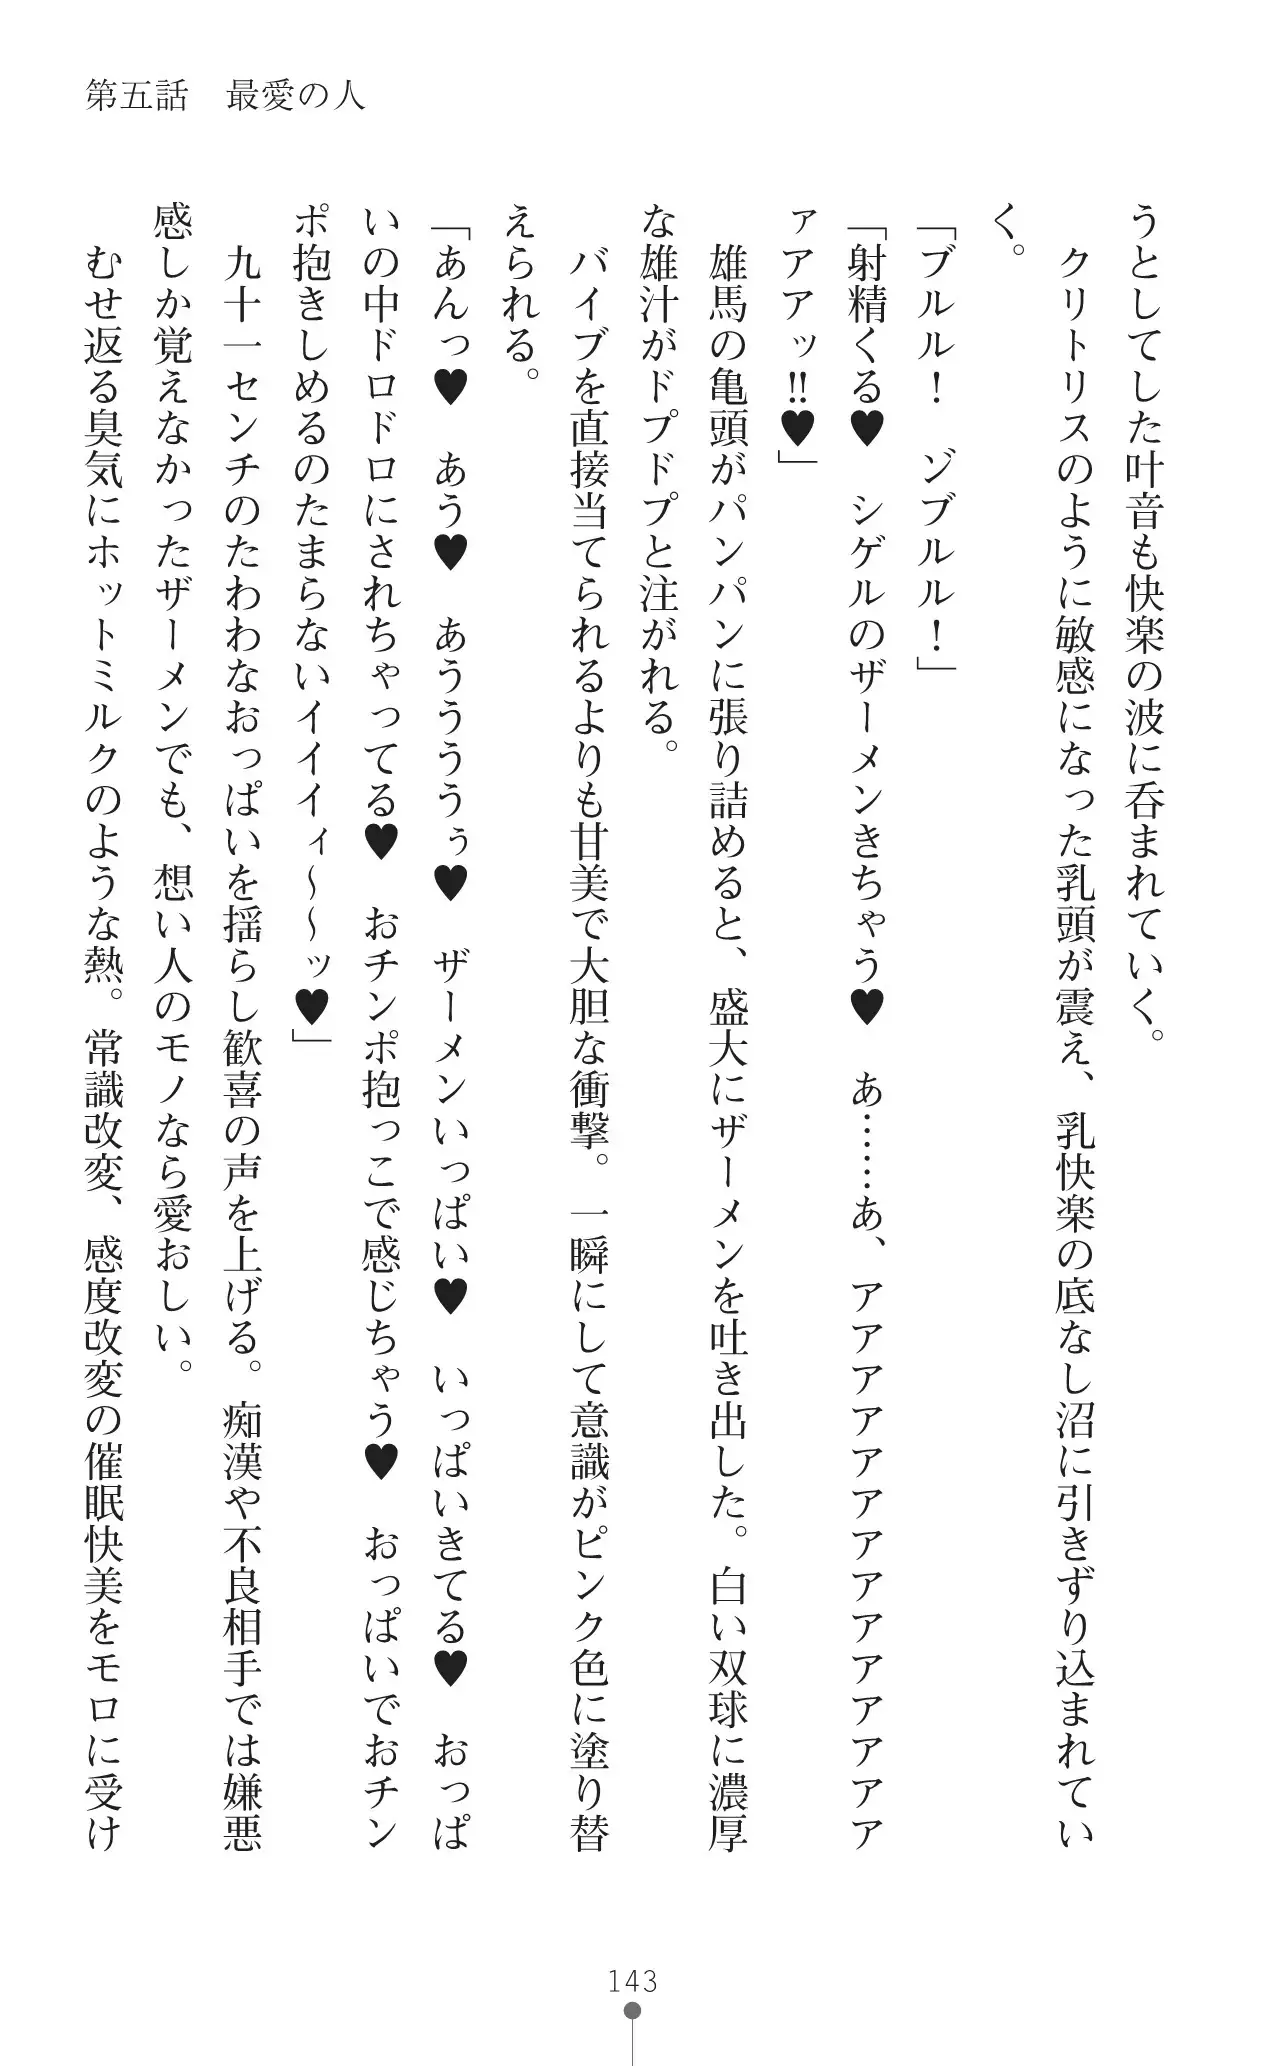 第五話　最愛の人
うとしてした叶音も快楽の波に呑まれていく。
　クリトリスのように敏感になった乳頭が震え、乳快楽の底なし沼に引きずり込まれてい
く。
「ブルル！　ゾブルル！」
「射精くる♥　シゲルのザーメンきちゃう♥　あ……あ、アアアアアアアアアアアアアア
ァアアッ‼♥」
　雄馬の亀頭がパンパンに張り詰めると、盛大にザーメンを吐き出した。白い双球に濃厚
な雄汁がドプドプと注がれる。
　バイブを直接当てられるよりも甘美で大胆な衝撃。一瞬にして意識がピンク色に塗り替
えられる。
「あんっ♥　あう♥　あううううぅ♥　ザーメンいっぱい♥　いっぱいきてる♥　おっぱ
いの中ドロドロにされちゃってる♥　おチンポ抱っこで感じちゃう♥　おっぱいでおチン
ポ抱きしめるのたまらないイイイィ～～ッ♥」
　九十一センチのたわわなおっぱいを揺らし歓喜の声を上げる。痴漢や不良相手では嫌悪
感しか覚えなかったザーメンでも、想い人のモノなら愛おしい。
　むせ返る臭気にホットミルクのような熱。常識改変、感度改変の催眠快美をモロに受け
143